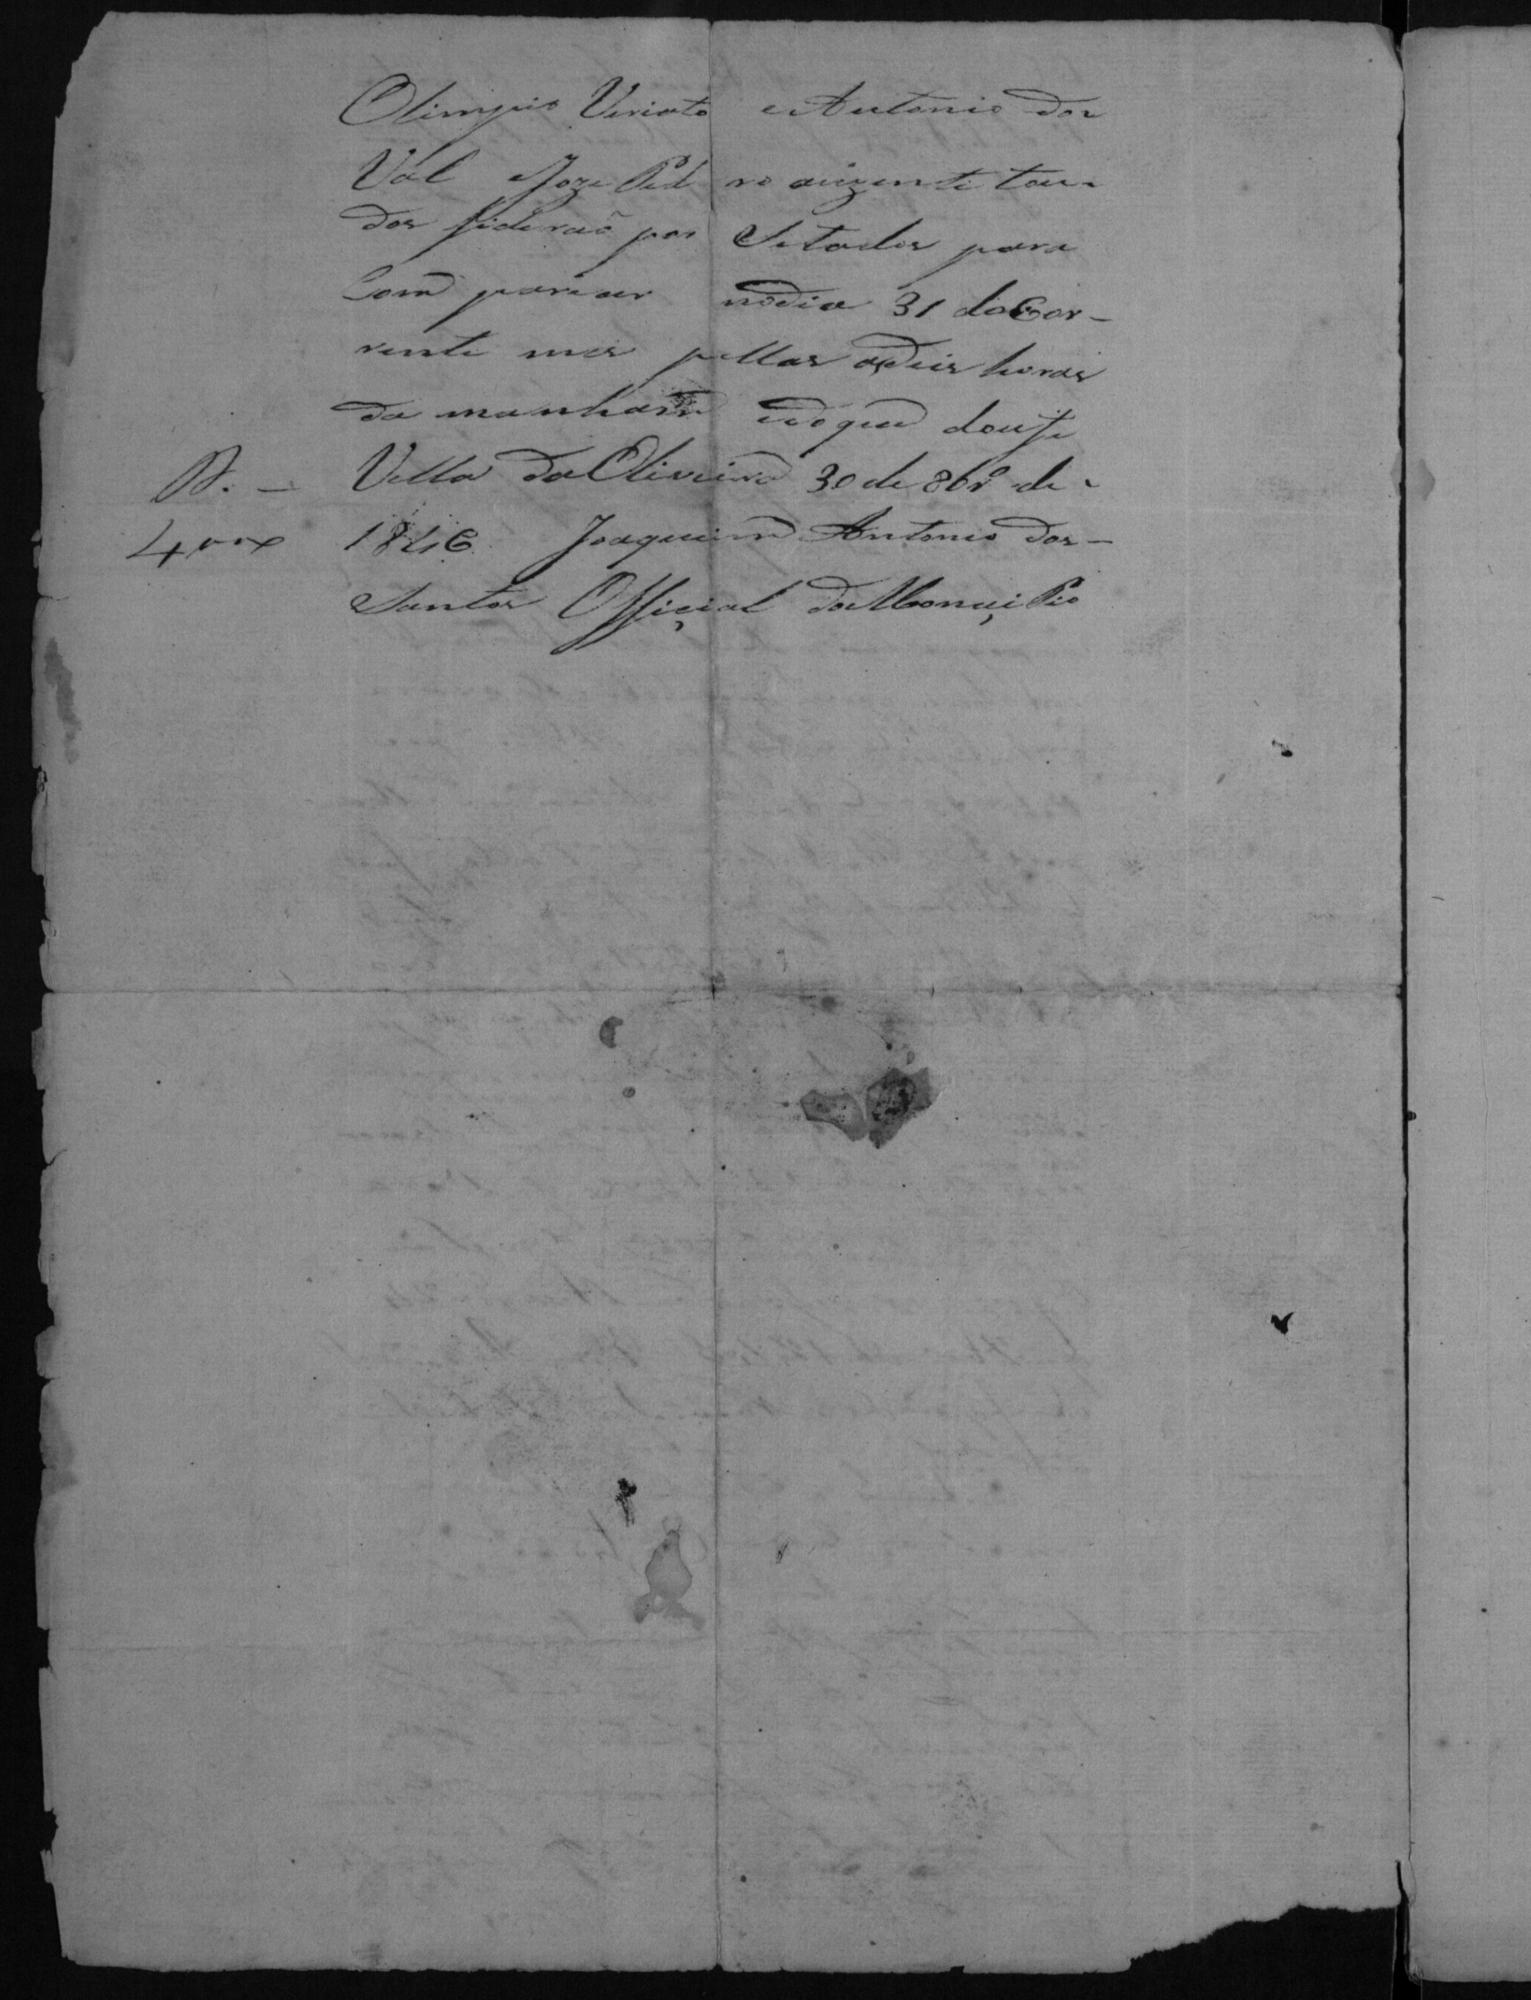 Olimpio Viriato e Antonio dos
Val e Joze Pedro auzente tou-
dos fiderão por Setados para
Com pareser nodia 31 do Cor-
rente mes pellas as deis horas
da manham edoque doufe
Villa da Oliveira 30 de 8br.º de
1846 Joaquim Antonio dos-
Santos Official da MonuiPio
R. -
400